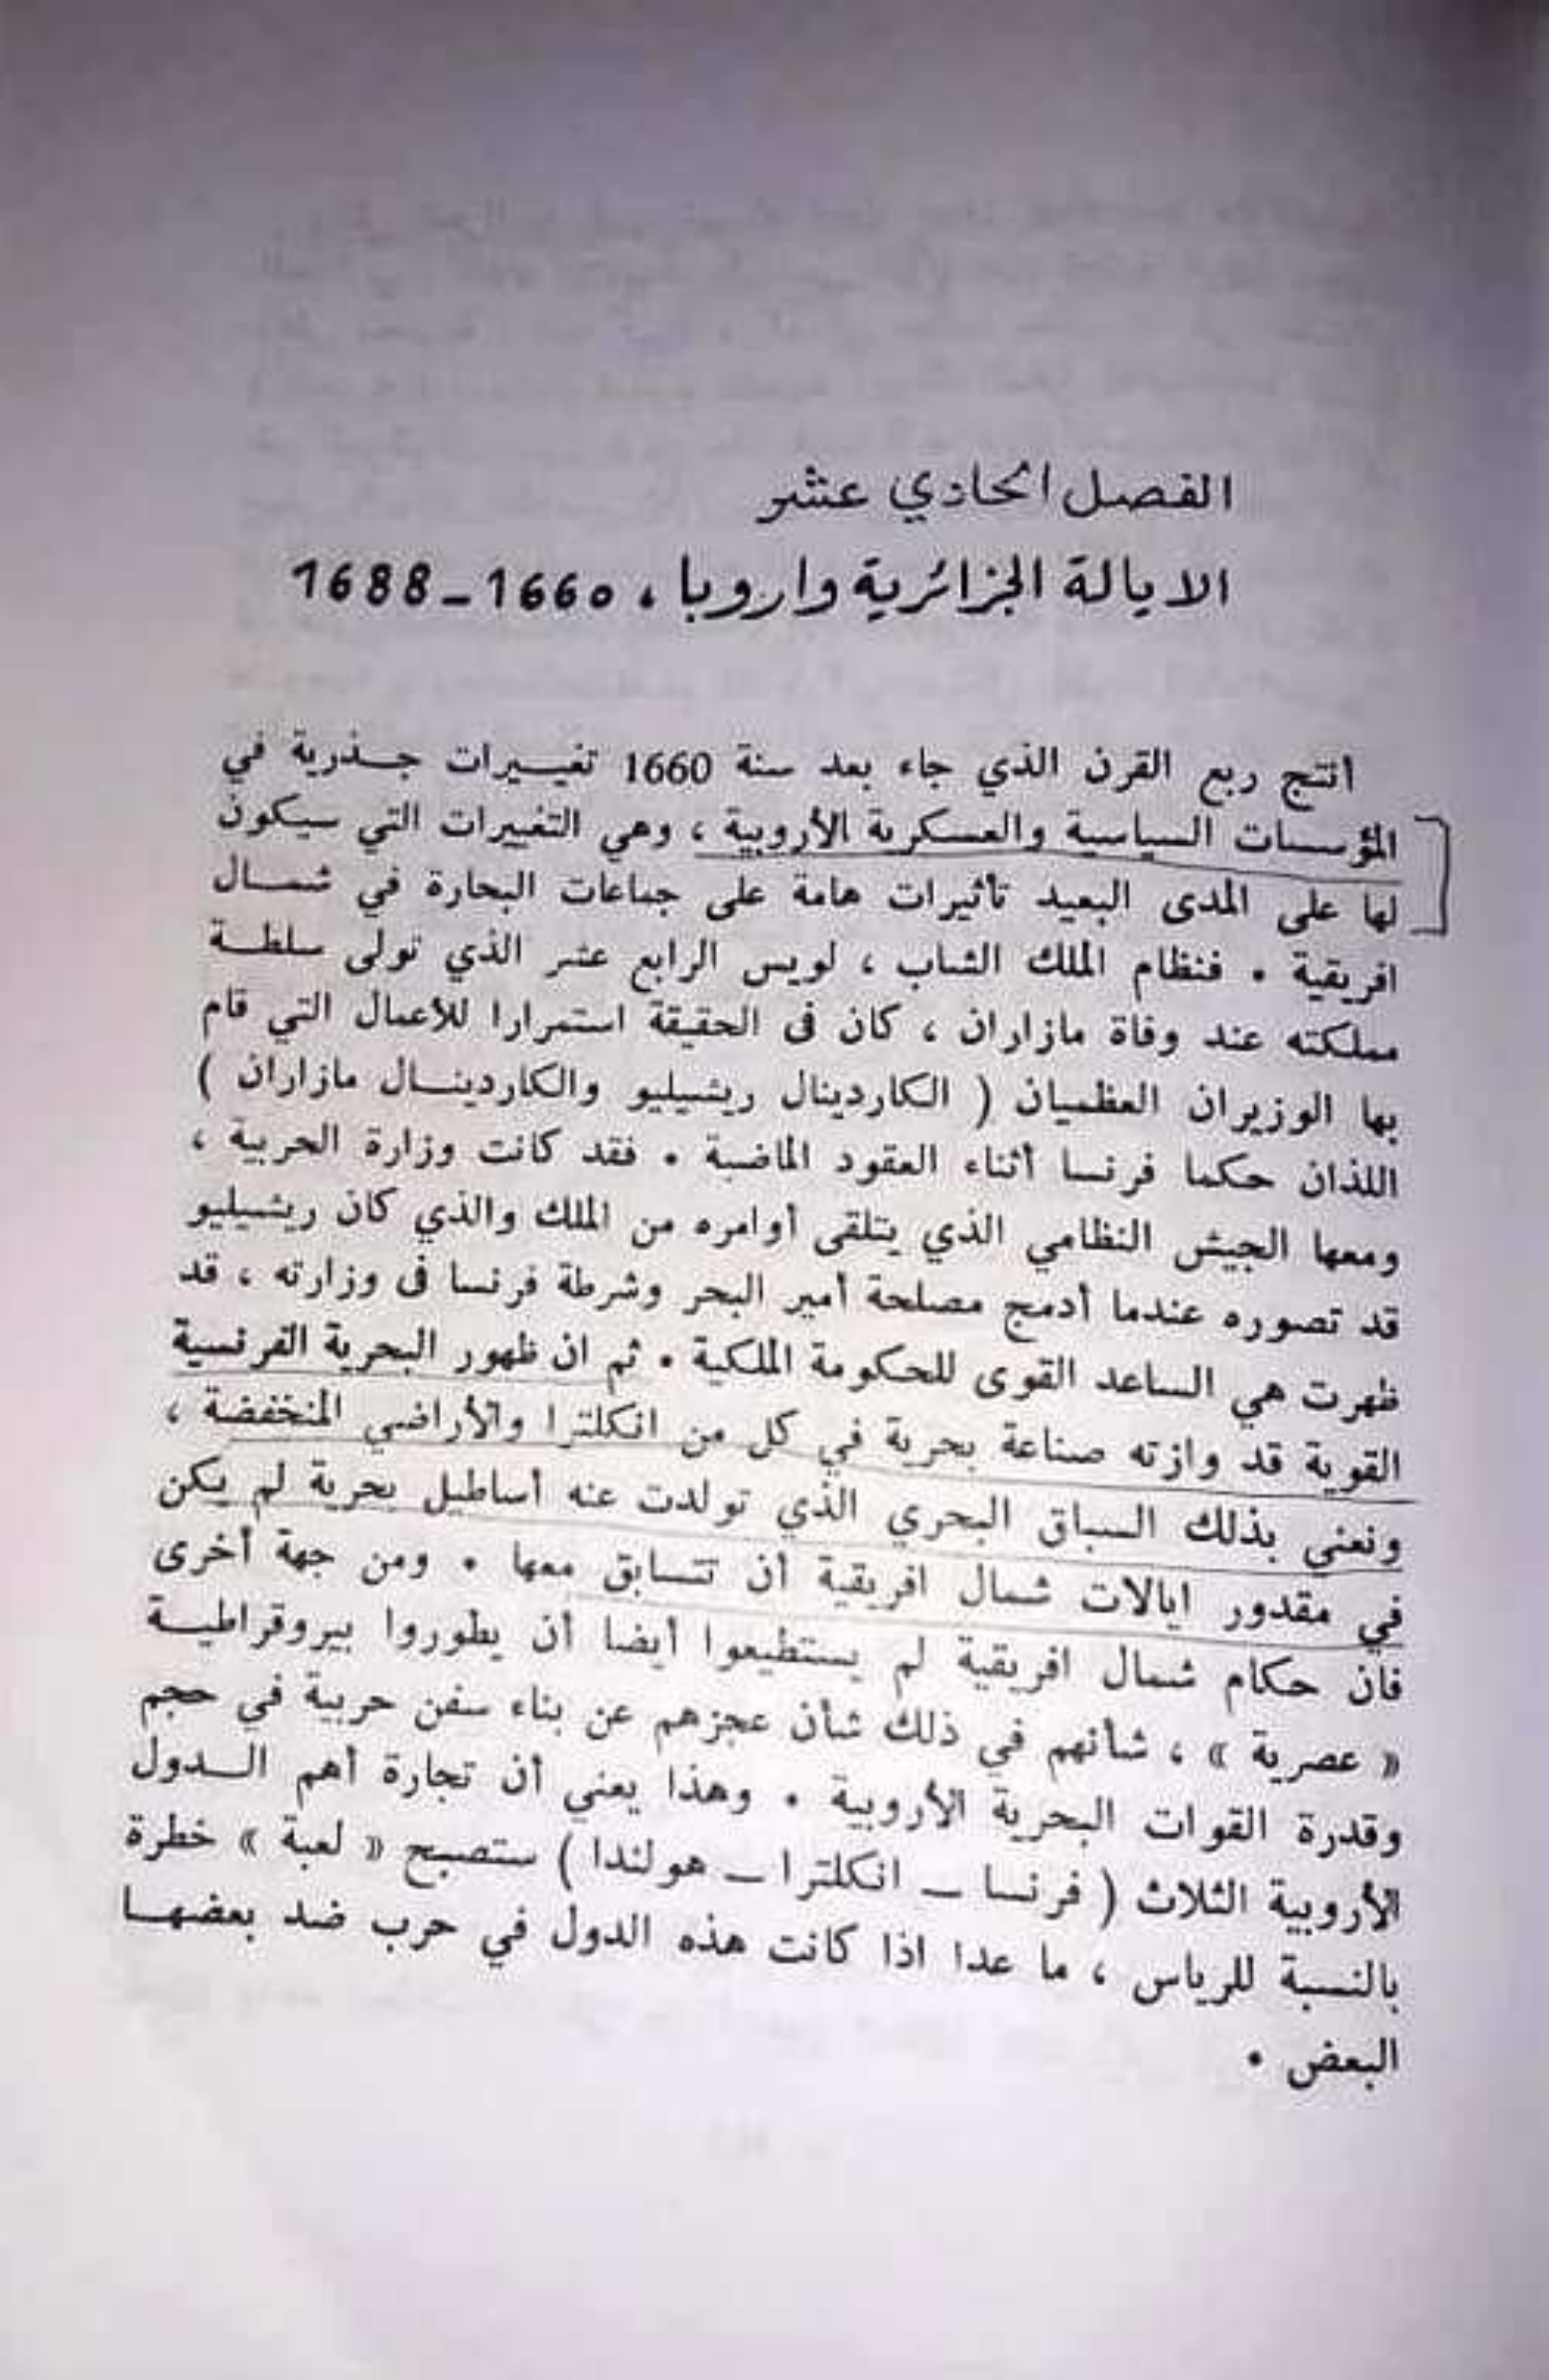 الفصل الحادي عشر
الايالة الجزائرية واروبا ، 1660 - 1688
أنتج ربع القرن الذي جاء بعد سنة 1660 تغيـــيرات جـــذرية في
المؤسسات السياسية والعسكرية الأروبية ، وهي التغييرات التي سيكون
لها على المدى البعيد تأثيرات هامة على جماعات البحارة في شمـــال
افريقية . فنظام الملك الشاب ، لويس الرابع عشر الذي تولى سلطـــة
مملكته عند وفاة مازاران ، كان فى الحقيقة استمرارا للأعمال التي قام
بها الوزيران العظميان ( الكاردينال ريشيليو والكاردينـــال مازاران )
اللذان حكما فرنسا أثناء العقود الماضية . فقد كانت وزارة الحربية ،
ومعها الجيش النظامي الذي يتلقى أوامره من الملك والذي كان ريشيليو
قد تصوره عندما أدمج مصلحة أمير البحر وشرطة فرنسا فى وزارته ، قد
ظهرت هي الساعد القوى للحكومة الملكية . ثم ان ظهور البحرية الفرنسية
القوية قد وازته صناعة بحرية في كل من انكلترا والأراضي المنخفضة ،
ونعني بذلك السباق البحري الذي تولدت عنه أساطيل بحرية لم يكن
في مقدور ايالات شمال افريقية أن تتسابق معها . ومن جهة أخرى
فان حكام شمال افريقية لم يستطيعوا أيضا أن يطوروا بيروقراطيـــة
« عصرية » ، شأنهم في ذلك شأن عجزهم عن بناء سفن حربية في حجم
وقدرة القوات البحرية الأروبية . وهذا يعني أن تجارة أهم الـــدول
الأروبية الثلاث ( فرنسا ـ انكلترا ـ هولندا ) ستصبح « لعبة » خطرة
بالنسبة للرياس ، ما عدا اذا كانت هذه الدول في حرب ضد بعضهـــا
البعض .